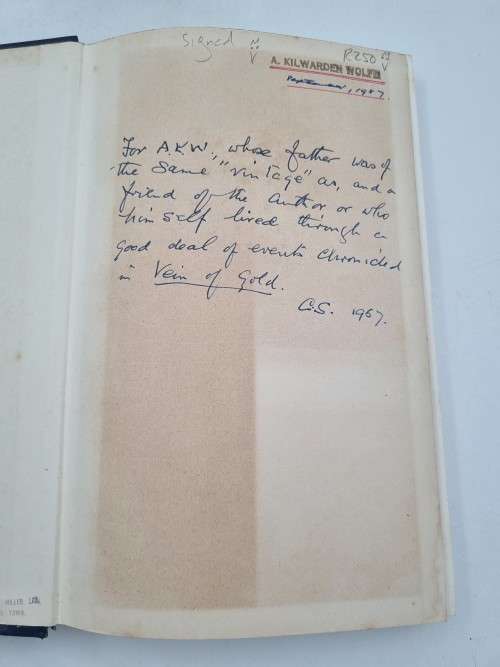 signed
R250
A. KILWARDEN WOLFE
1967.
For A.K.W., whose father was of
the same "vintage" as, and a
friend of the author or who
himself lived through a
good deal of events chronicled
in Vein of Gold.
C.S. 1967.